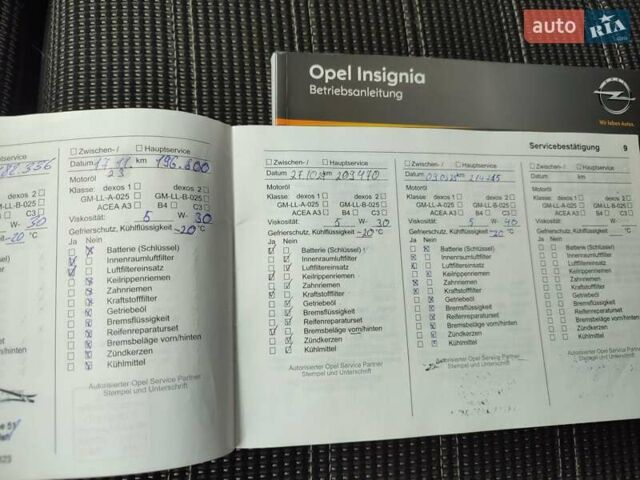 auto RIA .com
Opel Insignia
Betriebsanleitung
OPEL
Wir leben Autos.
Servicebestätigung 9
Hauptservice
356
dexos 2
GM-LL-B-025
C3
W- 30
-20 °C
n/hinten
Zwischen-/ Hauptservice
Datum 17 11 km 196.800
23
Motoröl
Klasse: dexos 1 dexos 2
GM-LL-A-025 GM-LL-B-025
ACEA A3 B4 C3
Viskosität: 5 W- 30
Gefrierschutz, Kühlflüssigkeit -20 °C
Ja Nein
Batterie (Schlüssel)
Innenraumluftfilter
Luftfiltereinsatz
Keilrippenriemen
Zahnriemen
Kraftstofffilter
Getriebeöl
Bremsflüssigkeit
Reifenreparaturset
Bremsbeläge vorn/hinten
Zündkerzen
Kühlmittel
Autorisierter Opel Service Partner
Stempel und Unterschrift
Zwischen-/ Hauptservice
Datum km 203470
Motoröl
Klasse: dexos 1 dexos 2
GM-LL-A-025 GM-LL-B-025
ACEA A3 B4 C3
Viskosität: 5 W- 30
Gefrierschutz, Kühlflüssigkeit -20 °C
Ja Nein
Batterie (Schlüssel)
Innenraumluftfilter
Luftfiltereinsatz
Keilrippenriemen
Zahnriemen
Kraftstofffilter
Getriebeöl
Bremsflüssigkeit
Reifenreparaturset
Bremsbeläge vorn/hinten
Zündkerzen
Kühlmittel
Autorisierter Opel Service Partner
Stempel und Unterschrift
Zwischen-/ Hauptservice
Datum km
Motoröl
Klasse: dexos 1 dexos 2
GM-LL-A-025 GM-LL-B-025
ACEA A3 B4 C3
Viskosität: 5 W- 40
Gefrierschutz, Kühlflüssigkeit -20 °C
Ja Nein
Batterie (Schlüssel)
Innenraumluftfilter
Luftfiltereinsatz
Keilrippenriemen
Zahnriemen
Kraftstofffilter
Getriebeöl
Bremsflüssigkeit
Reifenreparaturset
Bremsbeläge vorn/hinten
Zündkerzen
Kühlmittel
Autorisierter Opel Service Partner
Stempel und Unterschrift
Zwischen-/ Hauptservice
Datum km
Motoröl
Klasse: dexos 1 dexos 2
GM-LL-A-025 GM-LL-B-025
ACEA A3 B4 C3
Viskosität: W-
Gefrierschutz, Kühlflüssigkeit °C
Ja Nein
Batterie (Schlüssel)
Innenraumluftfilter
Luftfiltereinsatz
Keilrippenriemen
Zahnriemen
Kraftstofffilter
Getriebeöl
Bremsflüssigkeit
Reifenreparaturset
Bremsbeläge vorn/hinten
Zündkerzen
Kühlmittel
Autorisierter Opel Service Partner
Stempel und Unterschrift